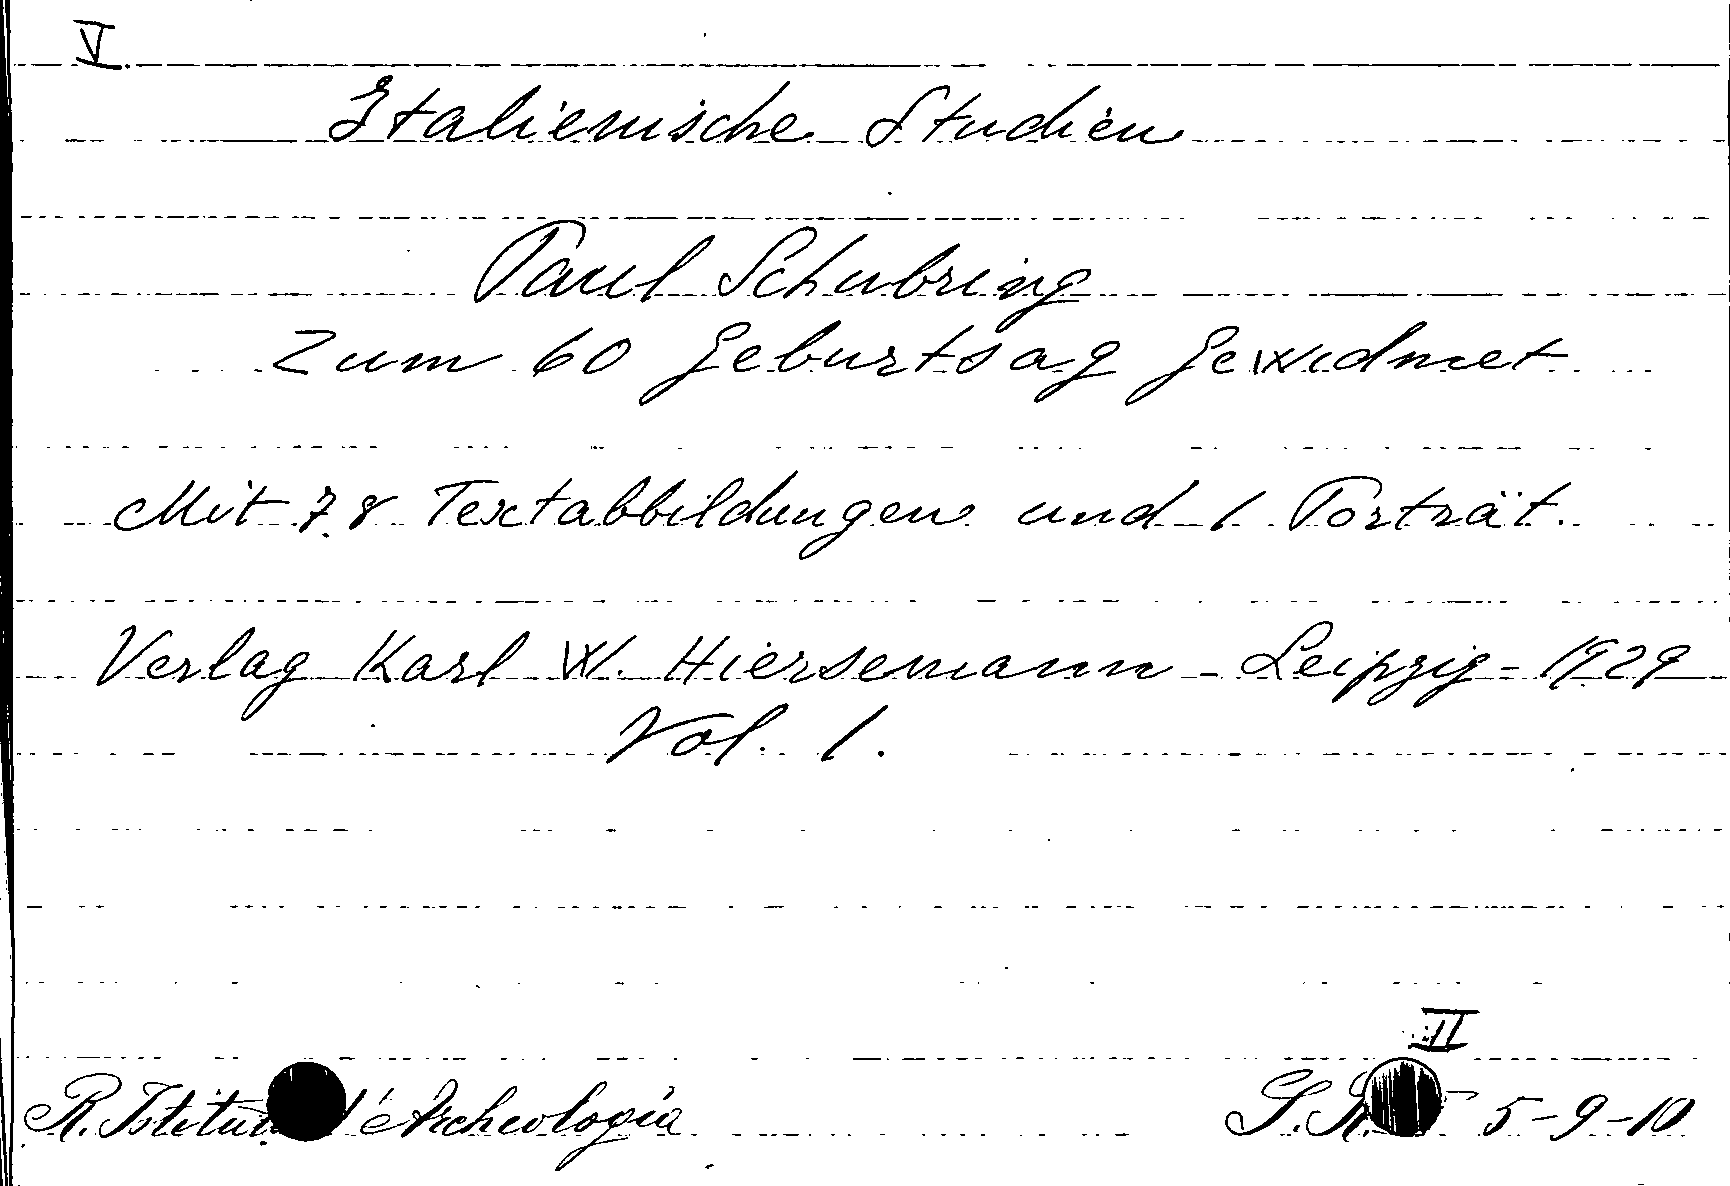 V.
Italienische Studien
Paul Schubring
Zum 60 Geburtsag Gewidmet
Mit 78 Textabbildungen und 1 Porträt.
Verlag Karl W. Hiersemann - Leipzig - 1929
Vol. 1.
II
R. Istitut d'Archeologia S. 5-9-10